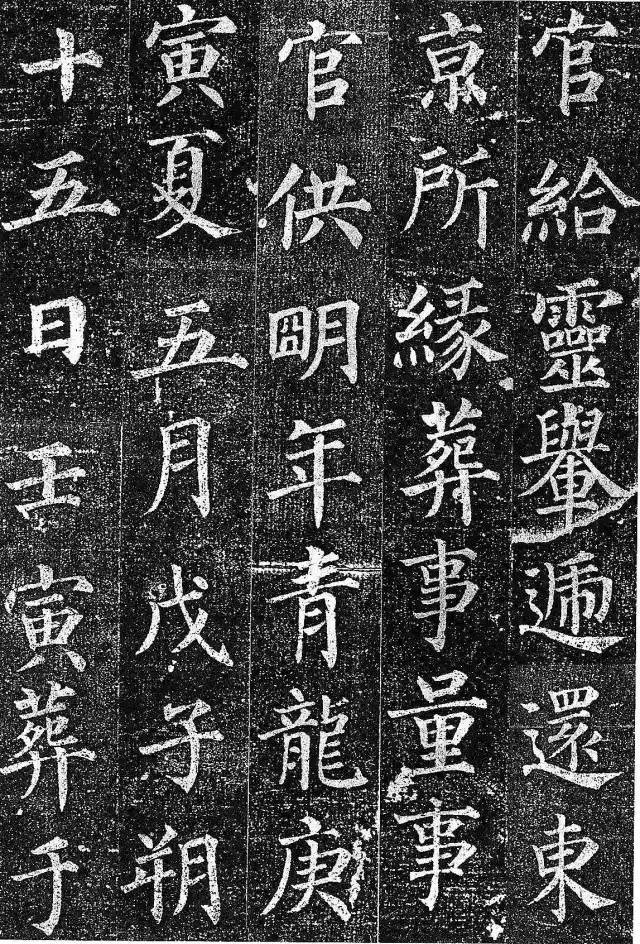 官給靈轝遞還東
京所緣葬事量事
官供明年青龍庚
寅夏五月戊子朔
十五日壬寅葬于